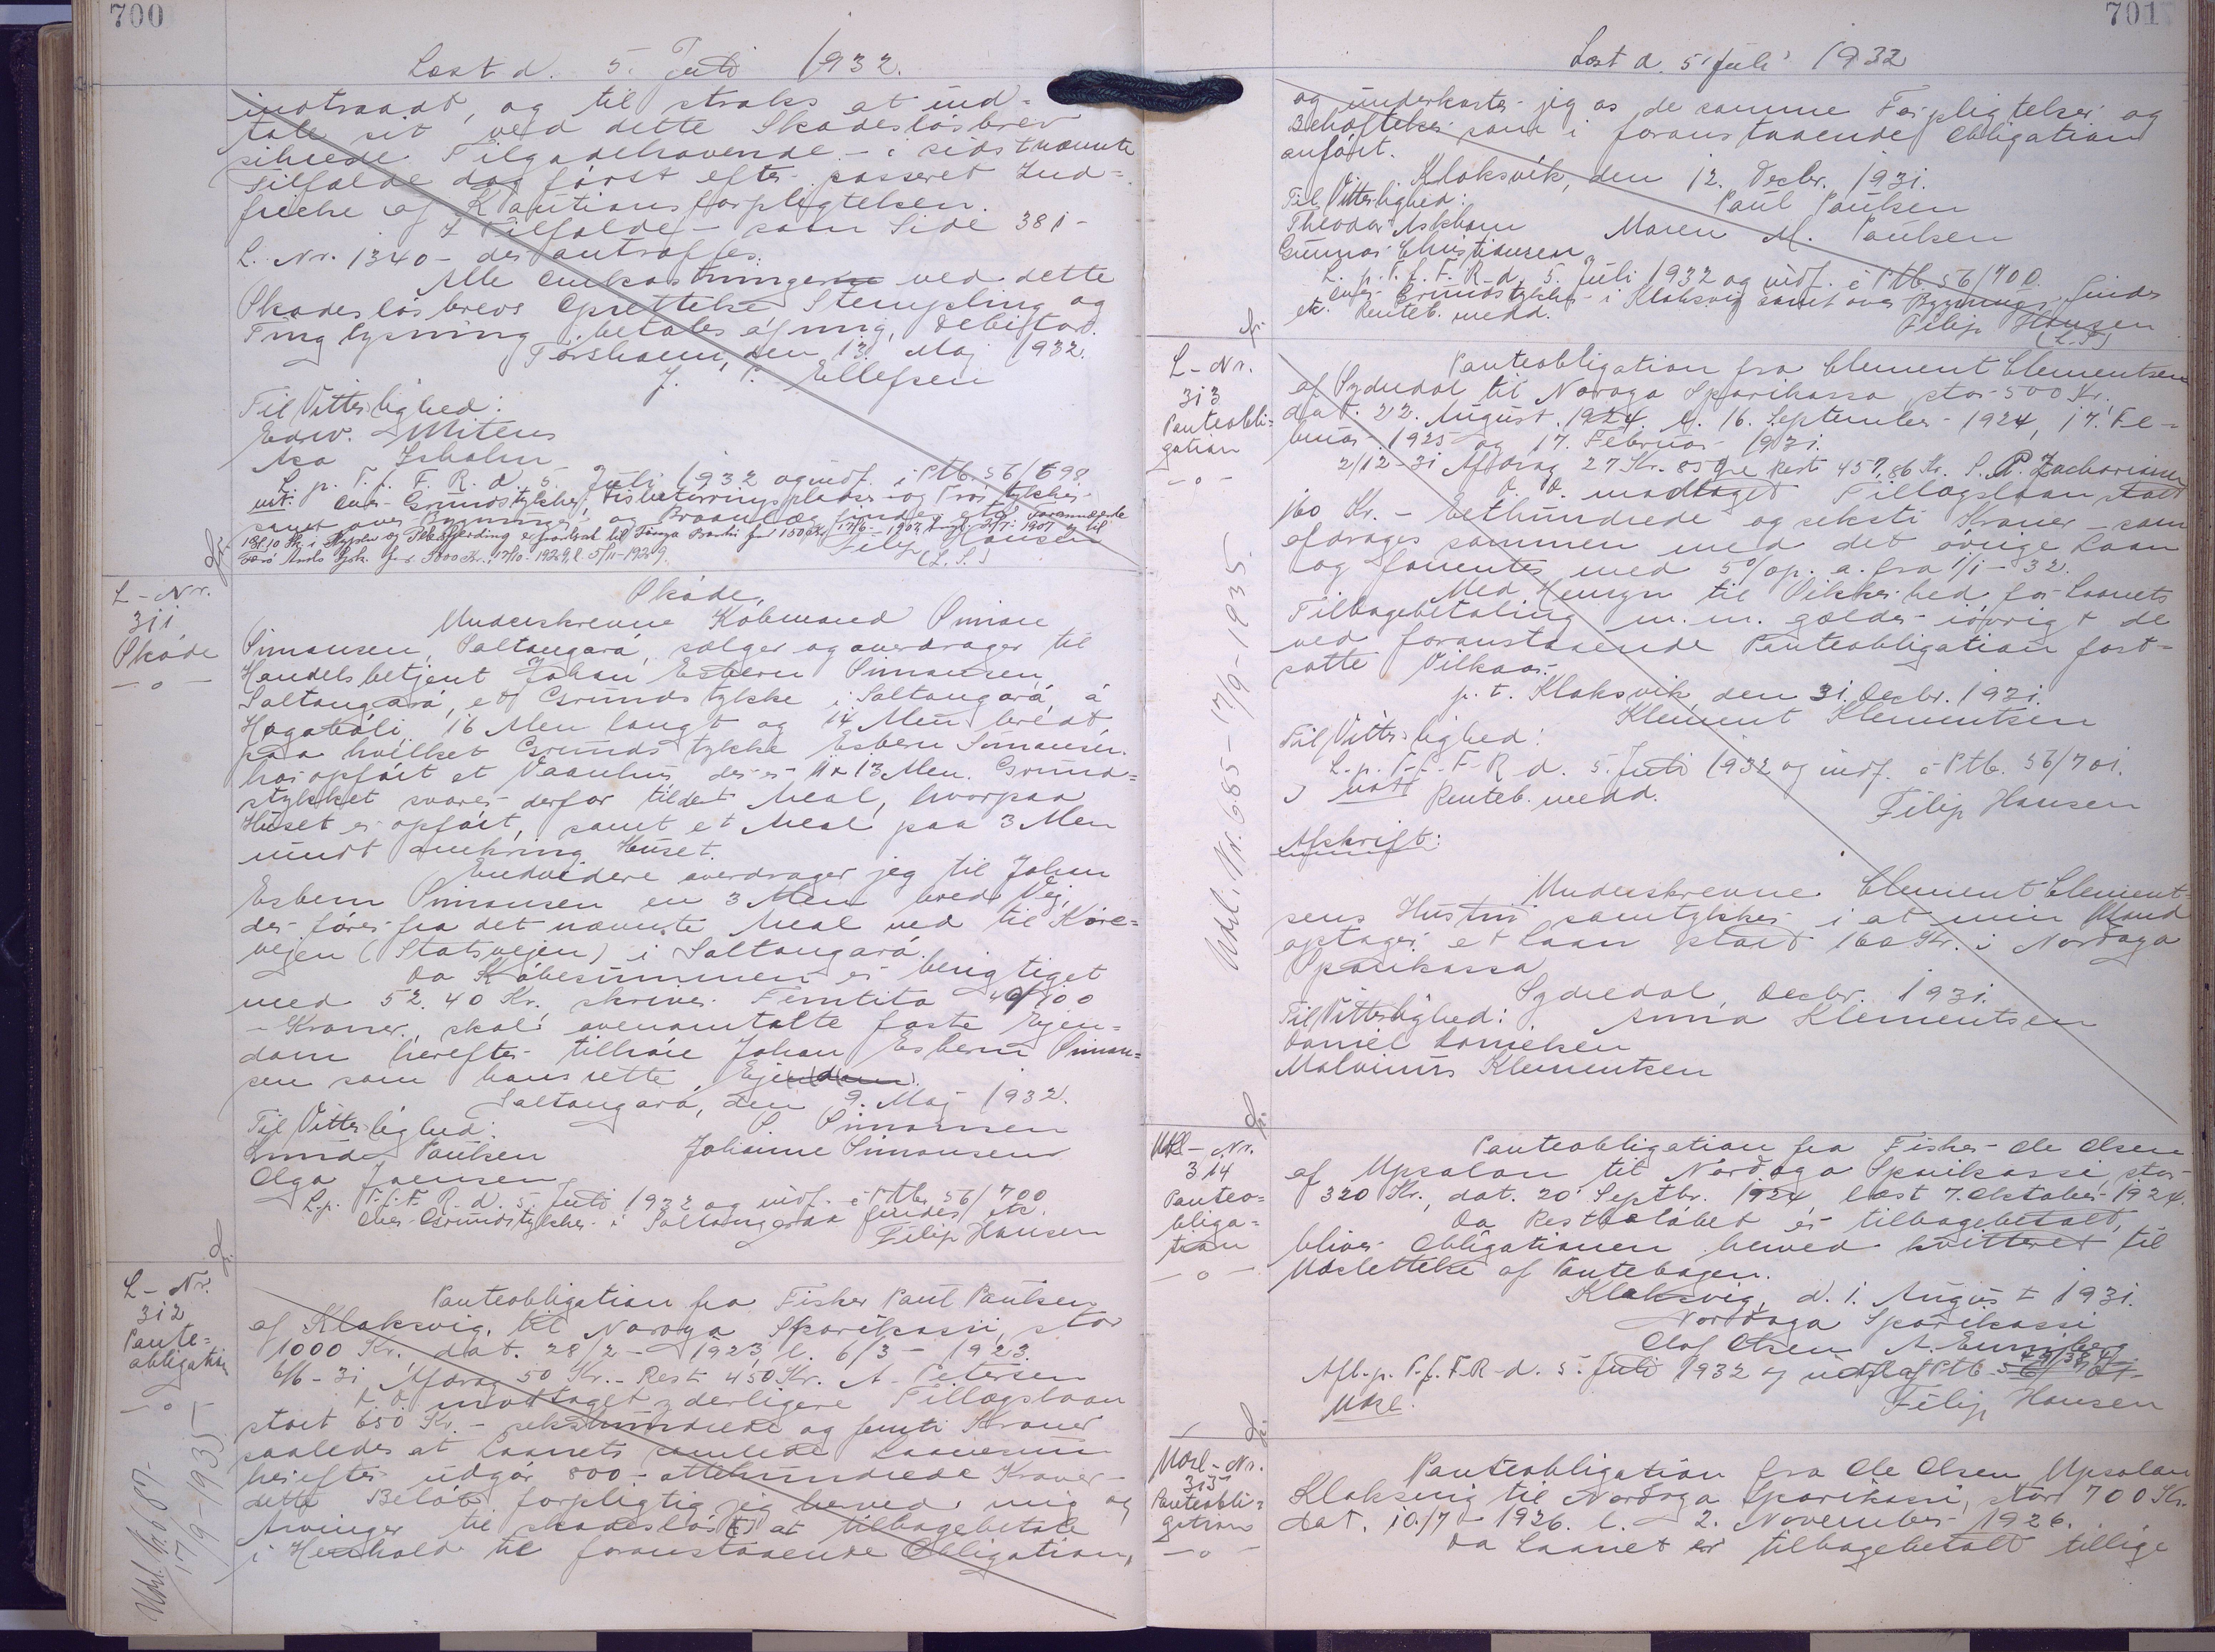 700
Læst d. 5. Juli 1932.
indtraadt, og til straks at ind=
tale sit ved dette Skadesløsbrev
sikrede Tilgodehavende - i sidstnævnte
Tilfælde dog først efter passeret Ind=
frielse af Kautionsforpligtelsen.
I Tilfælde - som Side 381 -
L. Nr. 1340 - der antræffes.
Alle Omkostningerne ved dette
Skadesløsbrevs Oprettelse Stempling og
Tinglysning betales af mig, Debitor.
Tórshavn, den 13. Maj 1932.
J. P. Ellefsen
Til Vitterlighed:
Edw. Mitens
Isholm
L. p. T. f. F. R. d. 5. Juli 1932 og indf. i Ptb. 56/698
over Grundstykker, Fisketørringspladser og Trøstykker
samt over Bygninger og Braanlæg findes
Filip Hansen
(L. S.)
L - Nr.
311
Skøde
- o -
Skøde.
Underskrevne Købmand Simon
Simonsen, Saltangará, sælger og overdrager til
Handelsbetjent Johan Esbern Simonsen
Saltangará, et Grundstykke i Saltangará, á
Hagabóli, 16 Men langt og 14 Men bredt,
paa hvilket Grundstykke Esbern Simonsen
har opført et Vaanhus der er 11 x 13 Men. Grund=
stykket svarer derfor til det Areal, hvorpaa
Huset er opført, samt et Areal paa 3 Men
rundt omkring Huset.
Endvidere overdrager jeg til Johan
Esbern Simonsen en 3 Men bred Vej,
der fører fra det nævnte Areal ned til Køre=
vejen (Statsvejen) i Saltangará.
Da Købesummen er berigtiget
med 52.40 Kr., skriver Femtito 40/100
- Kroner, skal ovenomtalte faste Ejen=
dom herefter tilhøre Johan Esbern Simon=
sen som hans rette Ejendom.
Saltangará, den 9. Maj 1932.
Til Vitterlighed: S. Simonsen
Poulsen Johanne Simonsen
Olga Joensen
L. p. T. f. F. R. d. 5. Juli 1932 og indf. i Ptb. 56/700
Over Grundstykker i Saltangaraa findes etc.
Filip Hansen
L - Nr.
312
Pante=
obligation
- o -
Udsl. Nr. 687 -
17/9 - 1935
Panteobligation fra Fisker Paul Paulsen
af Klaksvig, til Noroya Sparikassi, stor
1000 Kr. dat. 28/2 - 1923, l. 6/3 - 1923.
6/6 - 31 Afdrag 50 Kr. - Rest 450 Kr. A. Petersen
D. D. modtaget yderligere Tillægslaan
stort 650 Kr. - sekshundrede og femti Kroner
saaledes at Laanets samlede Laanesum
herefter udgør 800 - ottehundrede Kroner -
dette Beløb forpligtig jeg herved mig og
Arvinger til skadesløs(t) at tilbagebetale
i Henhold til foranstaaende Obligation,
701
Læst d. 5 Juli 1932
og underkaster jeg os de samme Forpligtelser og
Behæftelser som i foranstaaende Obligation
anført.
Klaksvík, den 12. Decbr. 1931.
Til Vitterlighed: Paul Paulsen
Theodor Askham Maren M. Paulsen
Gunnar Christiansen
L. p. T. f. F. R. d. 5. Juli 1932 og indf. i Ptb. 56/700.
over Grundstykker i Klaksvig samt over Bygninger findes
etc. Renteb. medd. Filip Hansen
(L.S)
L - Nr.
313
Panteobli=
gation
- o -
Udsl. Nr. 685 - 17/9 - 1935
Panteobligation fra Clement Clementsen
af Sydradal til Noroya Sparikassa stor 500 Kr.
dat. 22. August. 1924. l. 16. September 1924, 17. Fe=
bruar 1925 og 17. Februar 1931.
2/12 - 31 Afdrag 27 Kr. 85 Øre Rest 457,86 Kr. S. P. Zachariasen
D. D. modtaget Tillægslaan stort
160 Kr. - Ethundrede og seksti Kroner - som
afdrages sammen med det øvrige Laan
og forrentes med 5 % p. a. fra 1/1 - 32.
Med Hensyn til Sikkerhed for Laanets
Tilbagebetaling m. m. gælder iøvrigt de
ved foranstaaende Panteobligation fast=
satte Vilkaar.
p. t. Klaksvik, den 31. Decbr. 1931.
Klement Klementsen
Til Vitterlighed:
L. p. T. f. F. R d. 5. Juli 1932 og indf. i Ptb. 56/701.
Renteb. medd.
Filip Hansen
Afskrift:
Underskrevne Clement Clement=
sens Hustru samtykker i at min Mand
optager et Laan stort 160 Kr. i Nordoya
Sparikassa
Sydredal, Decbr. 1931.
Til Vitterlighed: Anna Klementsen
Daniel Danielsen
Malvinus Klementsen
Udsl - Nr.
314
Panteo=
bliga=
tion
- o -
Panteobligation fra Fisker Ole Olsen
af Upsalon til Nordoya Sparikassi, stor
320 Kr., dat. 20 Septbr. 1924, læst 7. Oktober 1924.
Da Restbeløbet er tilbagebetalt,
bliver Obligationen herved kvitteret til
Udslettelse af Pantebogen.
Klaksvig, d. 1. August 1931.
Nordoya Sparikassi
Olof Olsen A. Eunisberg
Afl. p. T. f. F. R d. 5. Juli 1932 og udsl. af Ptb.
Udsl. Filip Hansen
Udsl - Nr.
315
Panteobli=
gation
- o -
Panteobligation fra Ole Olsen Upsalon
Klaksvig til Nordoya Sparikassi, stor 700 Kr.
dat. 10./7 - 1926. l. 2. November 1926.
Da Laanet er tilbagebetalt tillige